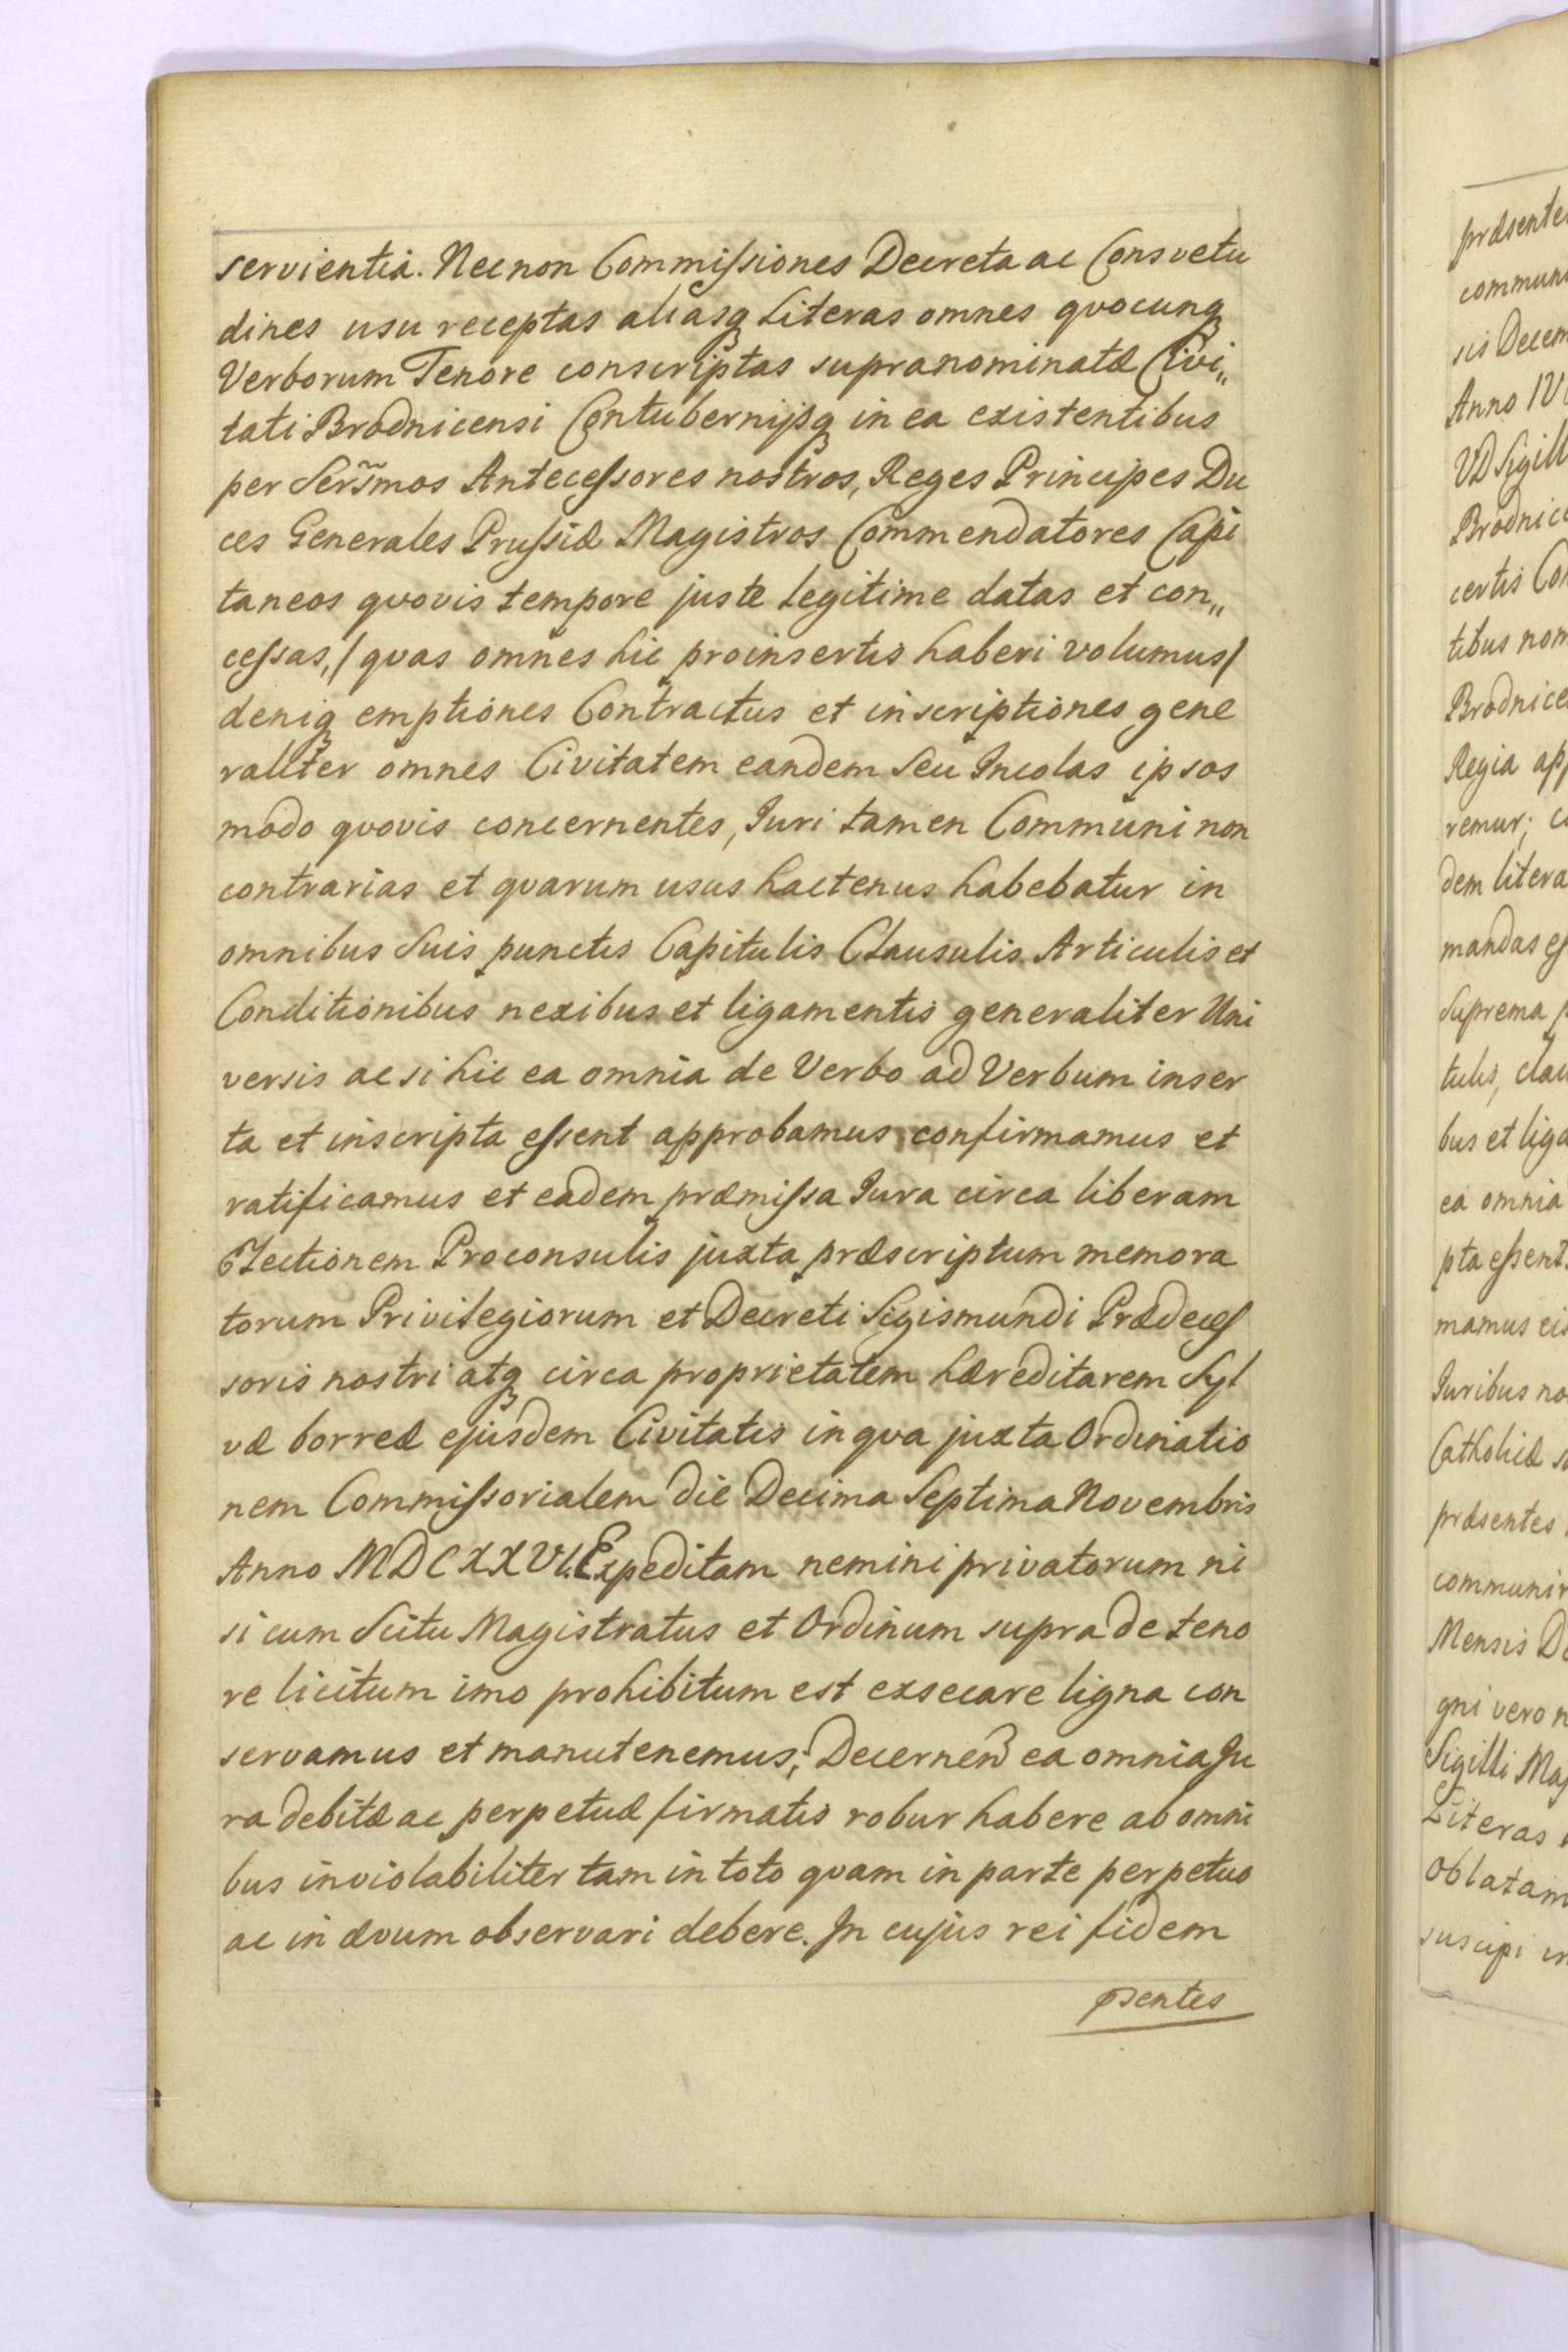 servientia. Necnon Commiſsiones Decreta ac Consvetu
dines usu receptas aliasq Literas omnes qvocunq
Verborum Tenore conscriptas supranominatæ Civi„
tati Brodnicensi Contubernijsq in ea existentibus
per Serm̃os Anteceſsores nostros, Reges Principes Du
ces Generales Pruſsiæ Magistros Commendatores Capi
taneos qvovis tempore juste legitime datas et con„
ceſsas, /qvas omnes hic pro insertis haberi volumus/
deniq emptiones Contractus et inscriptiones gene
raliter omnes Civitatem eandem Seu Incolas ipsos
modo qvovis concernentes, Juri tamen Communi non
contrarias et qvarum usus hactenus habebatur in
omnibus Suis punctis Capitulis Clausulis Articulis et
Conditionibus nexibus et ligamentis generaliter Uni
versis ac si hic ea omnia de Verbo ad Verbum inser
ta et inscripta eſsent approbamus confirmamus et
ratificamus et eadem præmiſsa Jura circa liberam
Electionem Proconsulis juxta præscriptum memora
torum Privilegiorum et Decreti Sigismundi Prædeceſ
soris nostri atq circa proprietatem hæreditarem Syl
væ borreæ ejusdem Civitatis in qva juxta Ordinatio
nem Commiſsorialem die Decima Septima Novembris
Anno MDCXXVI. Expeditam nemini privatorum ni
si cum Scitu Magistratus et Ordinum supra de teno
re licitum imo prohibitum est exsecare ligna con
servamus et manutenemus; Decernen͂ ea omnia Ju
ra debitæ ac perpetuæ firmatis robur habere ab omni
bus inviolabiliter tam in toto qvam in parte perpetuo
ac in ævum observari debere. In cujus rei fidem
psentes
communi
sis Decem
Anno
VD Sigill
Brodnic
certis Co
tibus nom
Brodnice
Regia app
remur;
dem litera
mandas eſ
Suprema
tulis, clau
bus et liga
ea omnia
pta eſsent
mamus eis
Juribus no
Catholicæ
præsentes
communir
Mensis D
gni vero
Sigilli Maj
Literas
Oblatam
suscipi